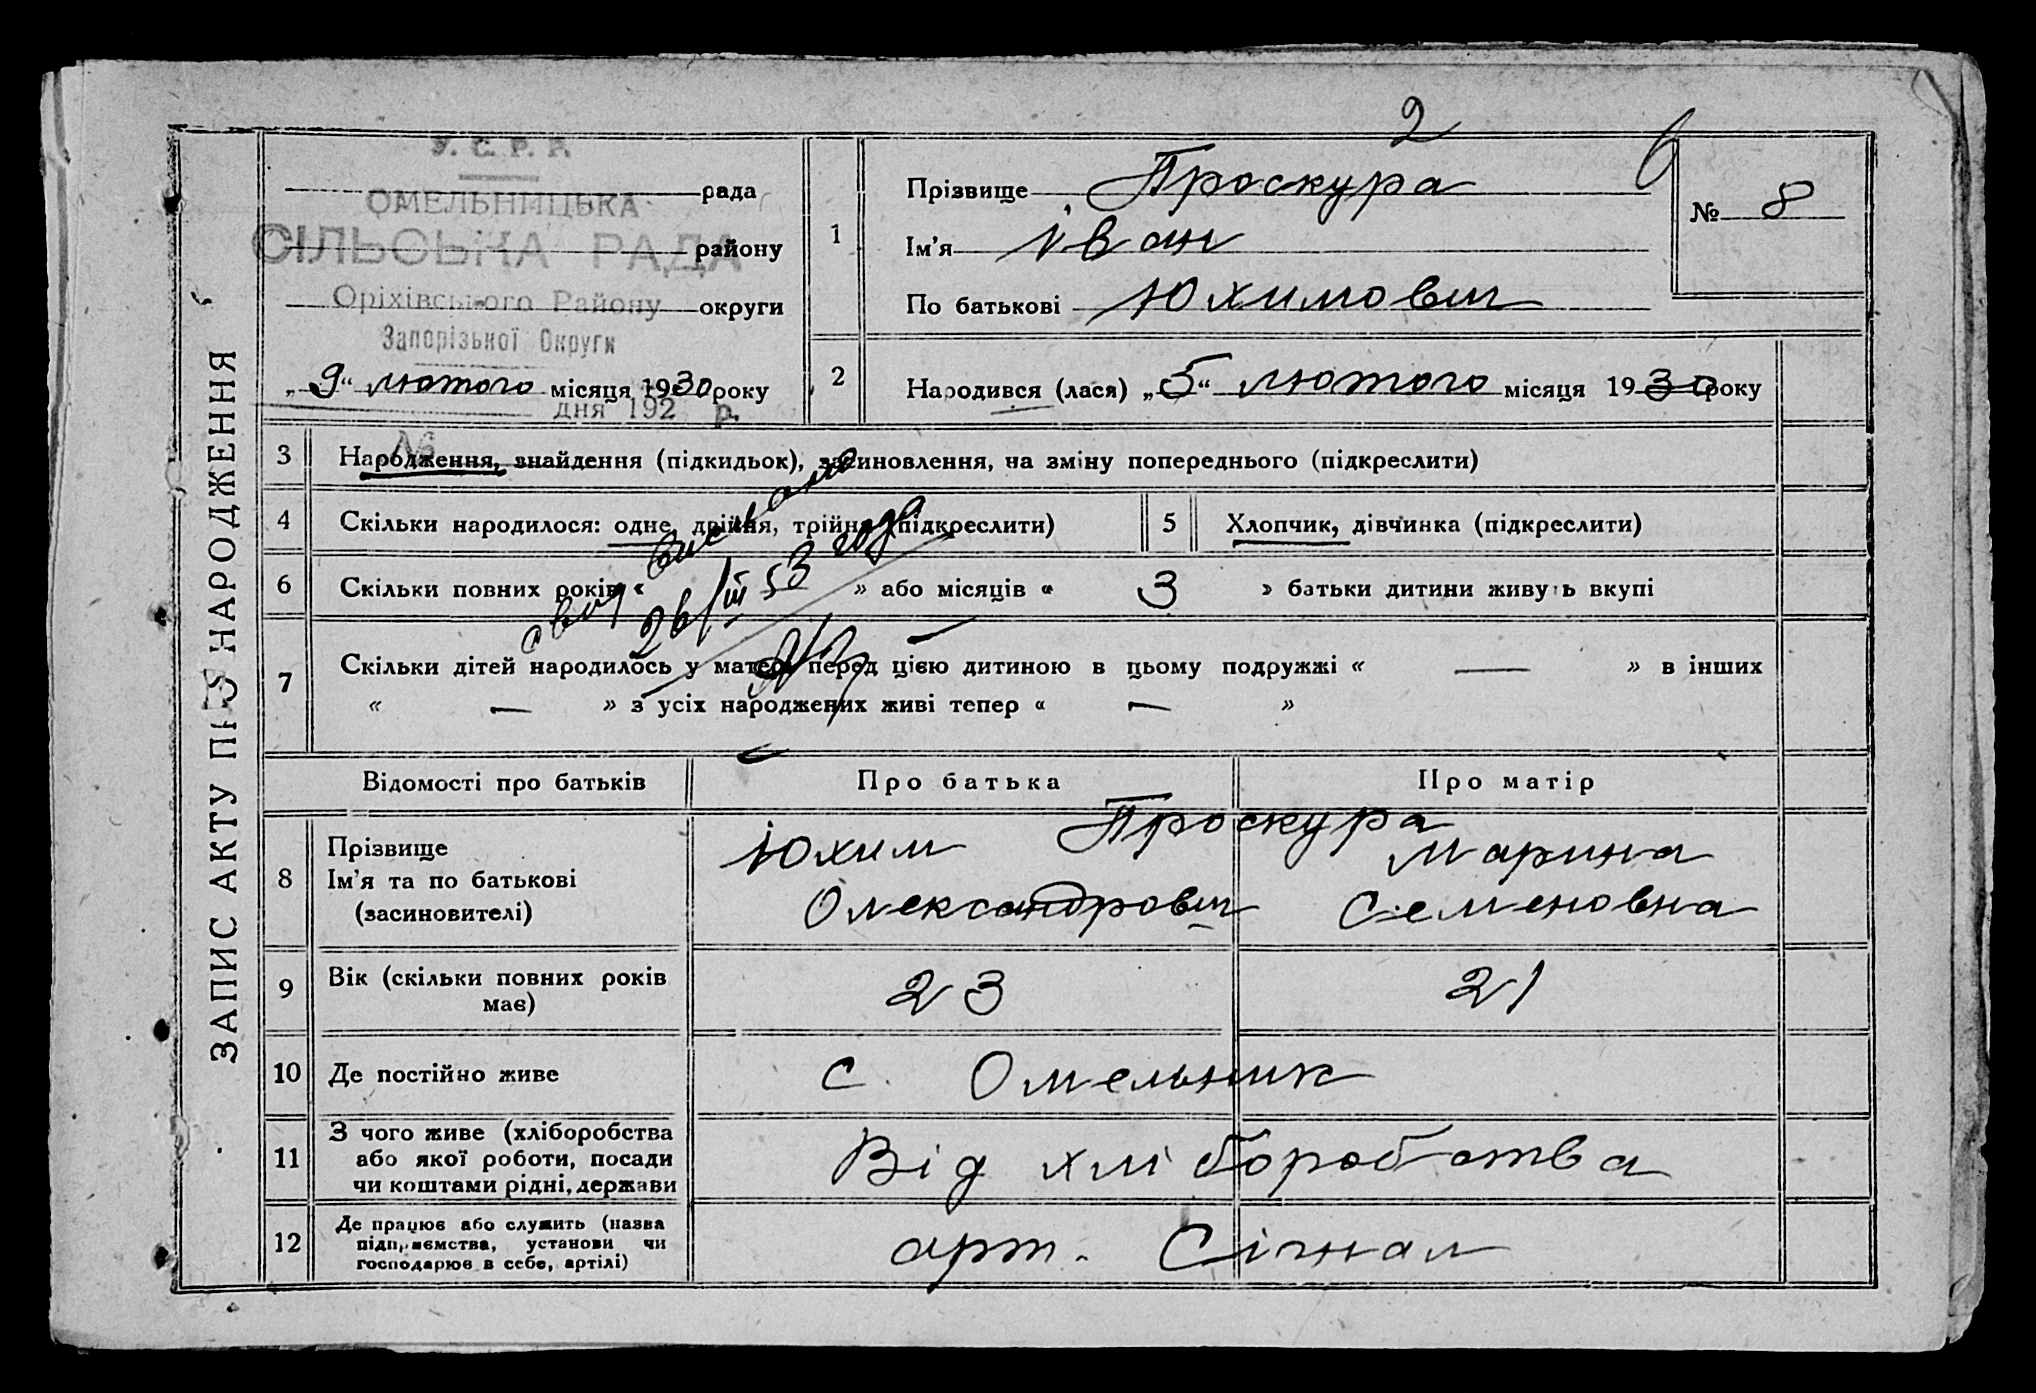 2
У. С. Р. Р.
рада
ОМЕЛЬНИЦЬКА
району
СІЛЬСЬКА РАДА
округи
Оріхівського Району
Запорізької Округи
„9“ лютого місяця 1930 року
дня 192 р.
№
1
Прізвище Проскура
Ім’я Іван
По батькові Юхимович
№ 8
2
Народився (лася) „5“ лютого місяця 1930 року
ЗАПИС АКТУ ПРО НАРОДЖЕННЯ
3 Народження, знайдення (підкидьок), засиновлення, на зміну попереднього (підкреслити)
4 Скільки народилося: одне, двійня, трійня (підкреслити)
5 Хлопчик, дівчинка (підкреслити)
6 Скільки повних років « » або місяців « 3 » батьки дитини живуть вкупі
7 Скільки дітей народилось у матері перед цією дитиною в цьому подружжі « — » в інших
« — » з усіх народжених живі тепер « — »
26/III 53 года
Відомості про батьків
Про батька
Про матір
8 Прізвище
Ім’я та по батькові
(засиновителі)
Проскура
Юхим
Олександрович
Марина
Семеновна
9 Вік (скільки повних років
має)
23
21
10 Де постійно живе
с. Омельник
11 З чого живе (хліборобства
або якої роботи, посади
чи коштами рідні, держави
Від хліборобства
12 Де працює або служить (назва
підприємства, установи чи
господарює в себе, артілі)
арт. Сігнал